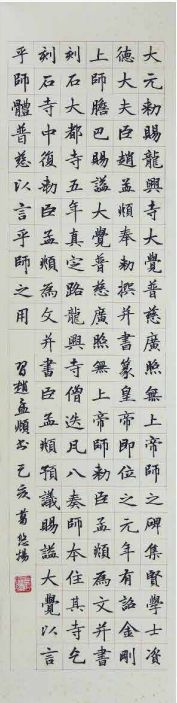 大元勅賜龍興寺大覺普慈廣照無上帝師之碑集賢學士資
德大夫臣趙孟頫奉勅撰并書篆皇帝即位之元年有詔金剛
上師膽巴賜謚大覺普慈廣照無上帝師勅臣孟頫為文并書
刻石大都寺五年真定路龍興寺僧迭凡八奏師本住其寺乞
刻石寺中復勅臣孟頫為文并書臣孟頫預議賜謚大覺以言
乎師體普慈以言乎師之用
習趙孟頫书 己亥 葛悠揚